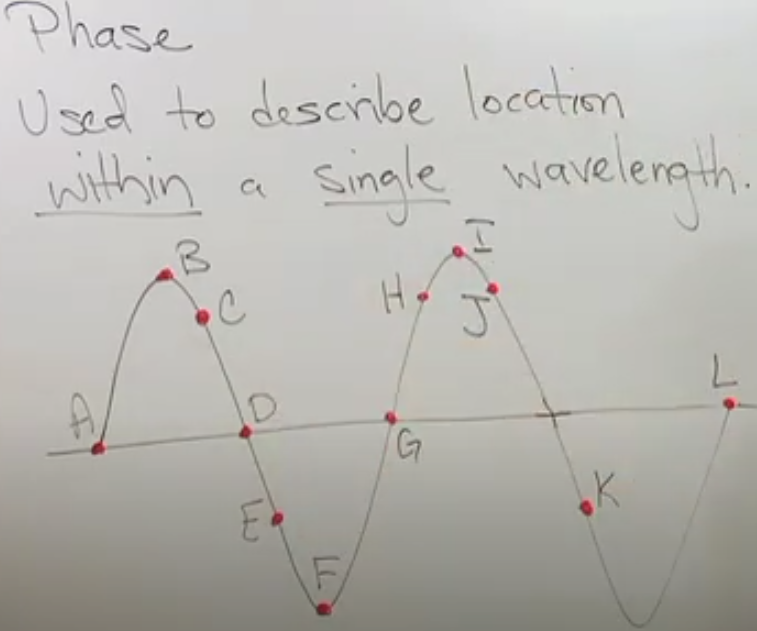 Phase
Used to describe location
within a single wavelength.
B I
C H J
A D L
G
E K
F